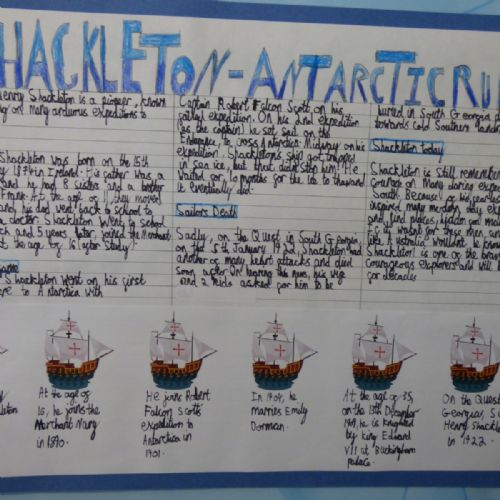 SHACKLETON-ANTARCTIC RU
Henry Shackleton is a pioneer, known
for many arduous expeditions to
Shackleton was born on the 15th
1874 in Ireland. His father was a
and he had 8 sisters and a brother
Frank. At the age of they moved
and he did went back to school to
a doctor. Shackleton went to school
and 5 years later, joined the Merchant
at the age of 16 after study
Shackleton went on his first
to Antarctica with
Captain Robert Falcon Scott on his
failed expedition. On his 2nd expedition
(as the captain) he set sail on the
Endurance, to cross Antarctica. Midway on his
expedition, Shackleton's ship got trapped
in sea ice, but that didn't stop him! He
waited for 10 months for the ice to thaw and
it eventually did.
Sailors Death
Sadly, on the Quest in South Georgia,
on the 5th January 1922, Shackleton had
another of many heart attacks and died
soon after. On hearing this news, his wife
and 2 kids asked for him to be
buried in South Georgia
towards cold Southern lands
Shackleton today
Shackleton is still remembered
courage on many daring expeditions
South. Because of his
inspired many modern day
and find places hidden on
it wasn't for these men,
like Australia wouldn't be
Shackleton is one of the
courageous explorers and will
for decades
Shackleton
At the age of
16, he joins the
Merchant Navy
in 1890.
He joins Robert
Falcon Scott's
expedition to
Antarctica in
1901.
In 1904, he
marries Emily
Dorman.
At the age of 35,
on the 13th December
1909, he is knighted
by King Edward
VII at Buckingham
palace.
On the Quest
Georgia, S
Henry Shackle
in 1922.